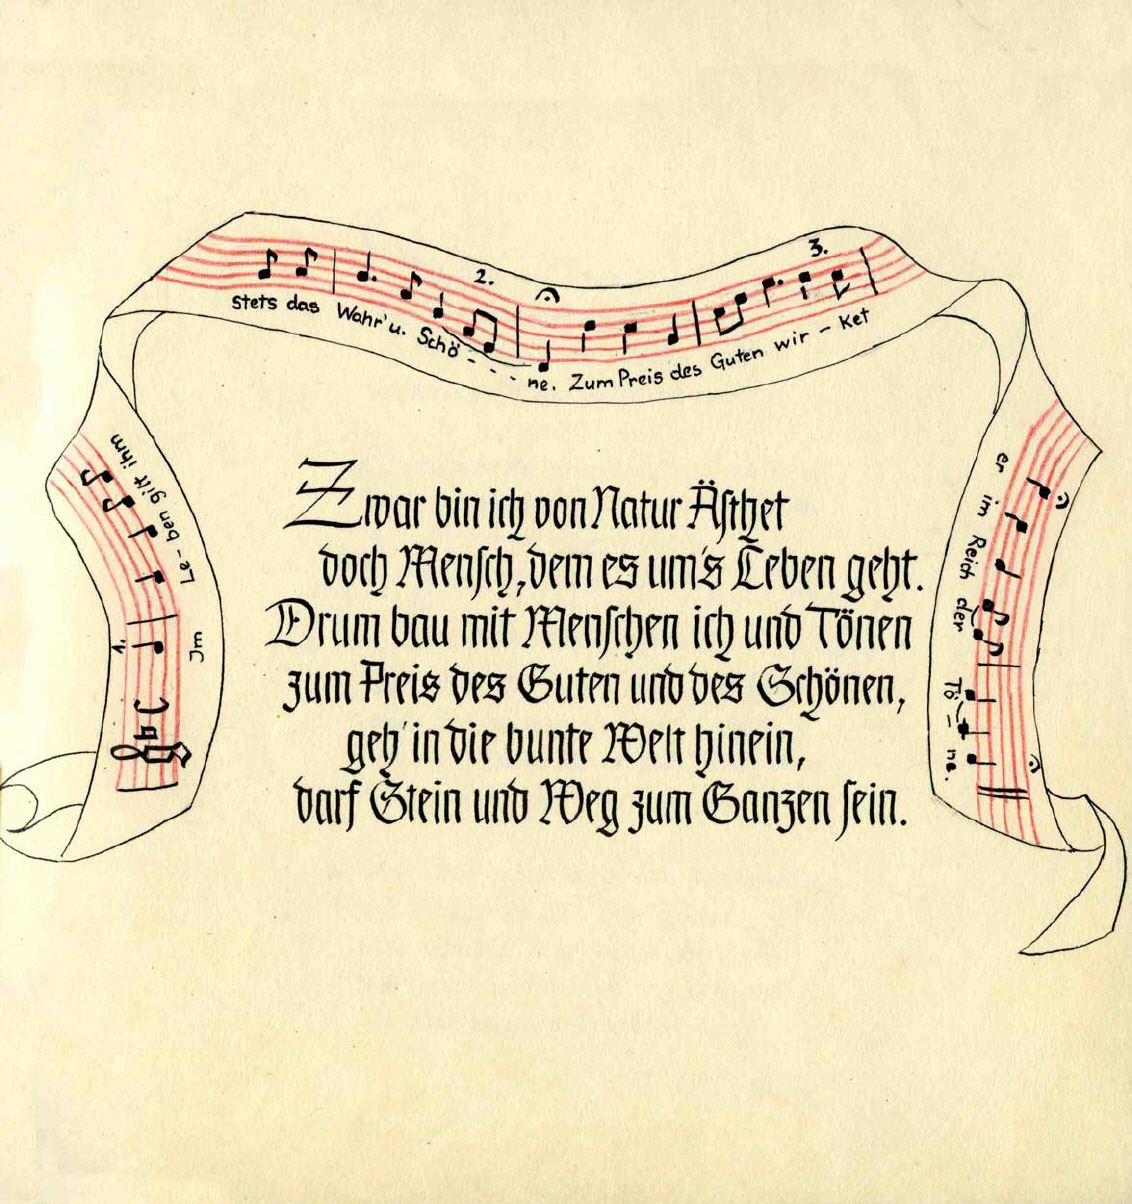 1.
Im Le-ben gilt ihm
stets das Wahr' u. Schö - - - ne. Zum Preis des Guten wir - ket
2.
3.
er im Reich der Tö - ne.
Zwar bin ich von Natur Ästhet
doch Mensch, dem es um's Leben geht.
Drum bau mit Menschen ich und Tönen
zum Preis des Guten und des Schönen,
geh' in die bunte Welt hinein,
darf Stein und Weg zum Ganzen sein.